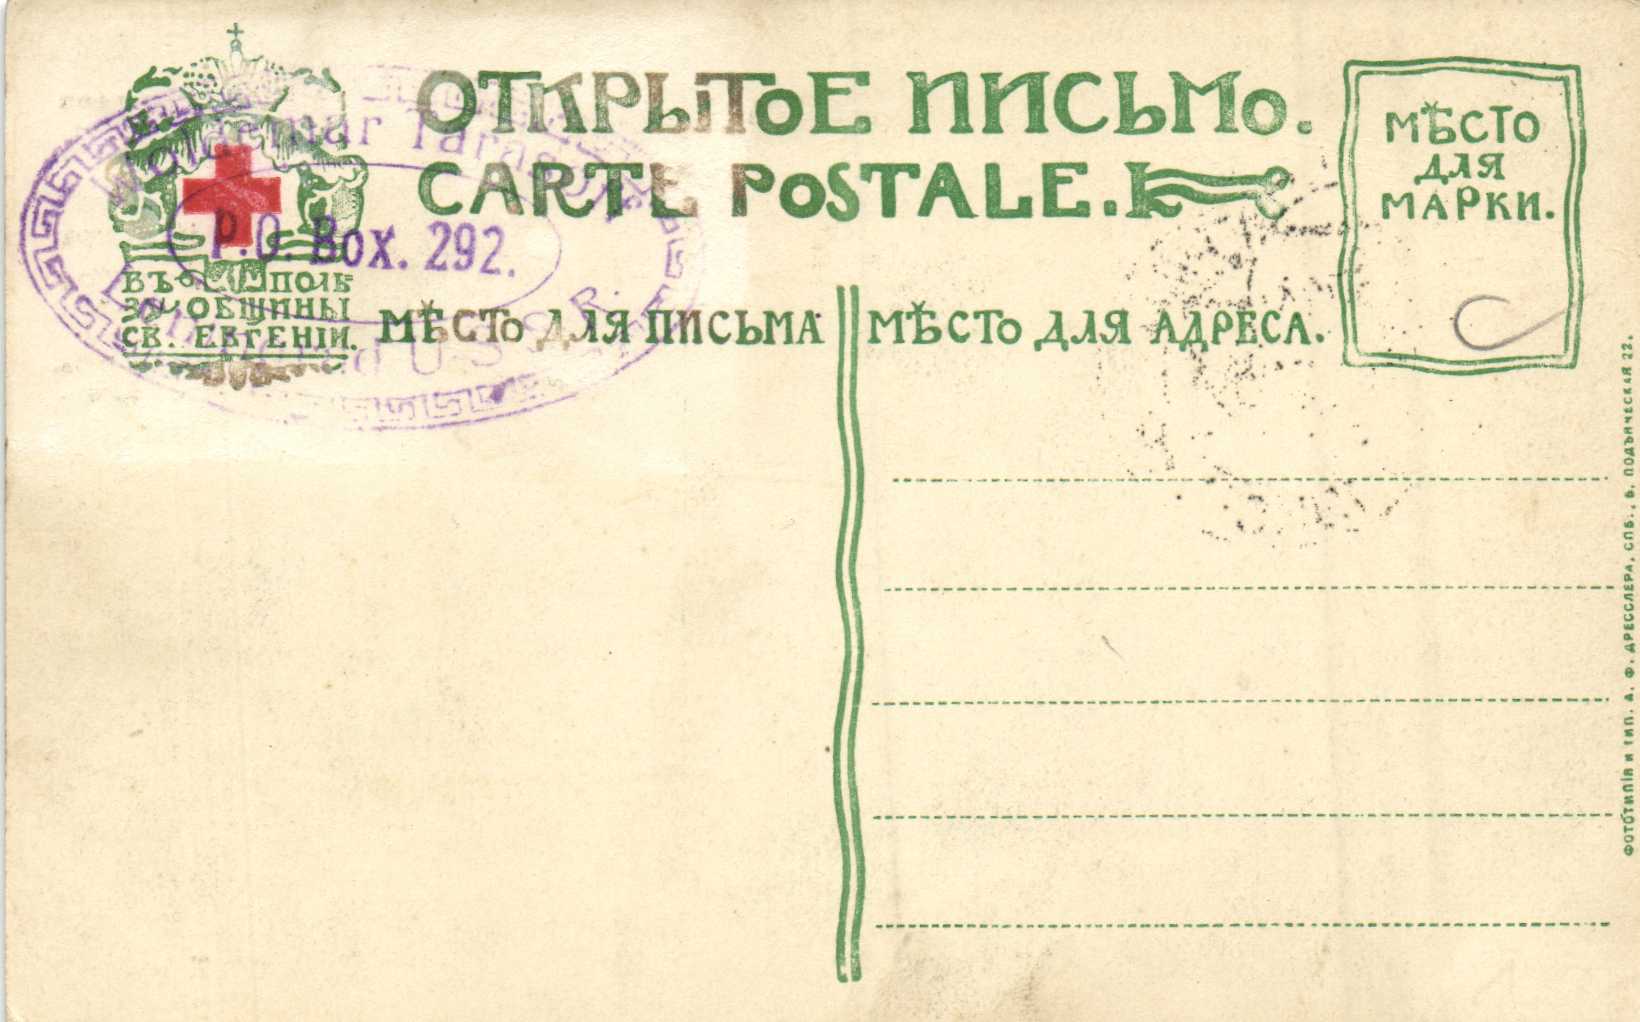 ОТКРЫТОЕ ПИСЬМО.
CARTE POSTALE.
МѢСТО
ДЛЯ
МАРКИ.
P.O. Box. 292.
U.S.S.R.
ВЪ ПОЛЬ
ЗУ ОБЩИНЫ
СВ. ЕВГЕНІИ.
МѢСТО ДЛЯ ПИСЬМА
МѢСТО ДЛЯ АДРЕСА.
ФОТОТИПІЯ И ТИП. А. Ф. ДРЕССЛЕРА, СПБ., Б. ПОДЪЯЧЕСКАЯ 22.